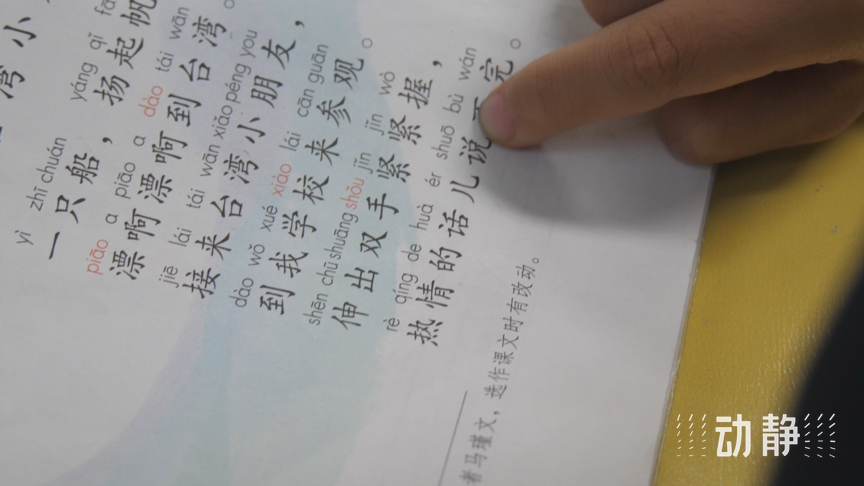 湾小
yì zhī chuán yáng qǐ
一只船，扬起帆
piāo a piāo a dào tái wān
漂啊漂啊到台湾。
jiē lái tái wān xiǎo péng you
接来台湾小朋友，
dào wǒ xué xiào lái cān guān
到我学校来参观。
shēn chū shuāng shǒu jǐn jǐn wò
伸出双手紧紧握，
rè qíng de huà ér shuō bú wán
热情的话儿说不完。
者马瑾文，选作课文时有改动。
动静